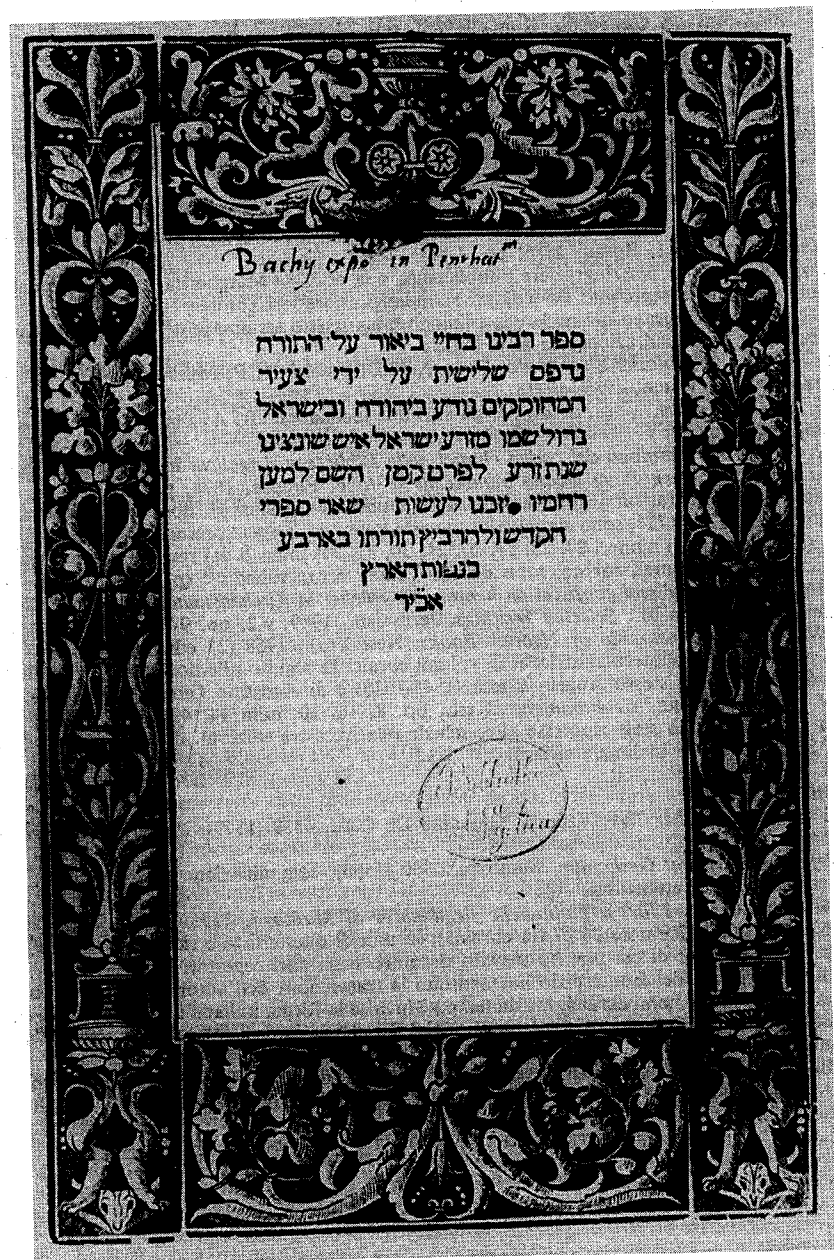 Bachy expo in Penthat
ספר רבינו בחיי ביאור על התורה
נדפס שלישית על ידי צעיר
המחוקקים נודע ביהודה ובישראל
גדול שמו מזרע ישראל איש שונצינו
שנת זרע לפרט קטן השם למען
רחמיו יזכנו לעשות שאר ספרי
הקדש ולהרביץ תורתו בארבע
כנפות הארץ
אכיר